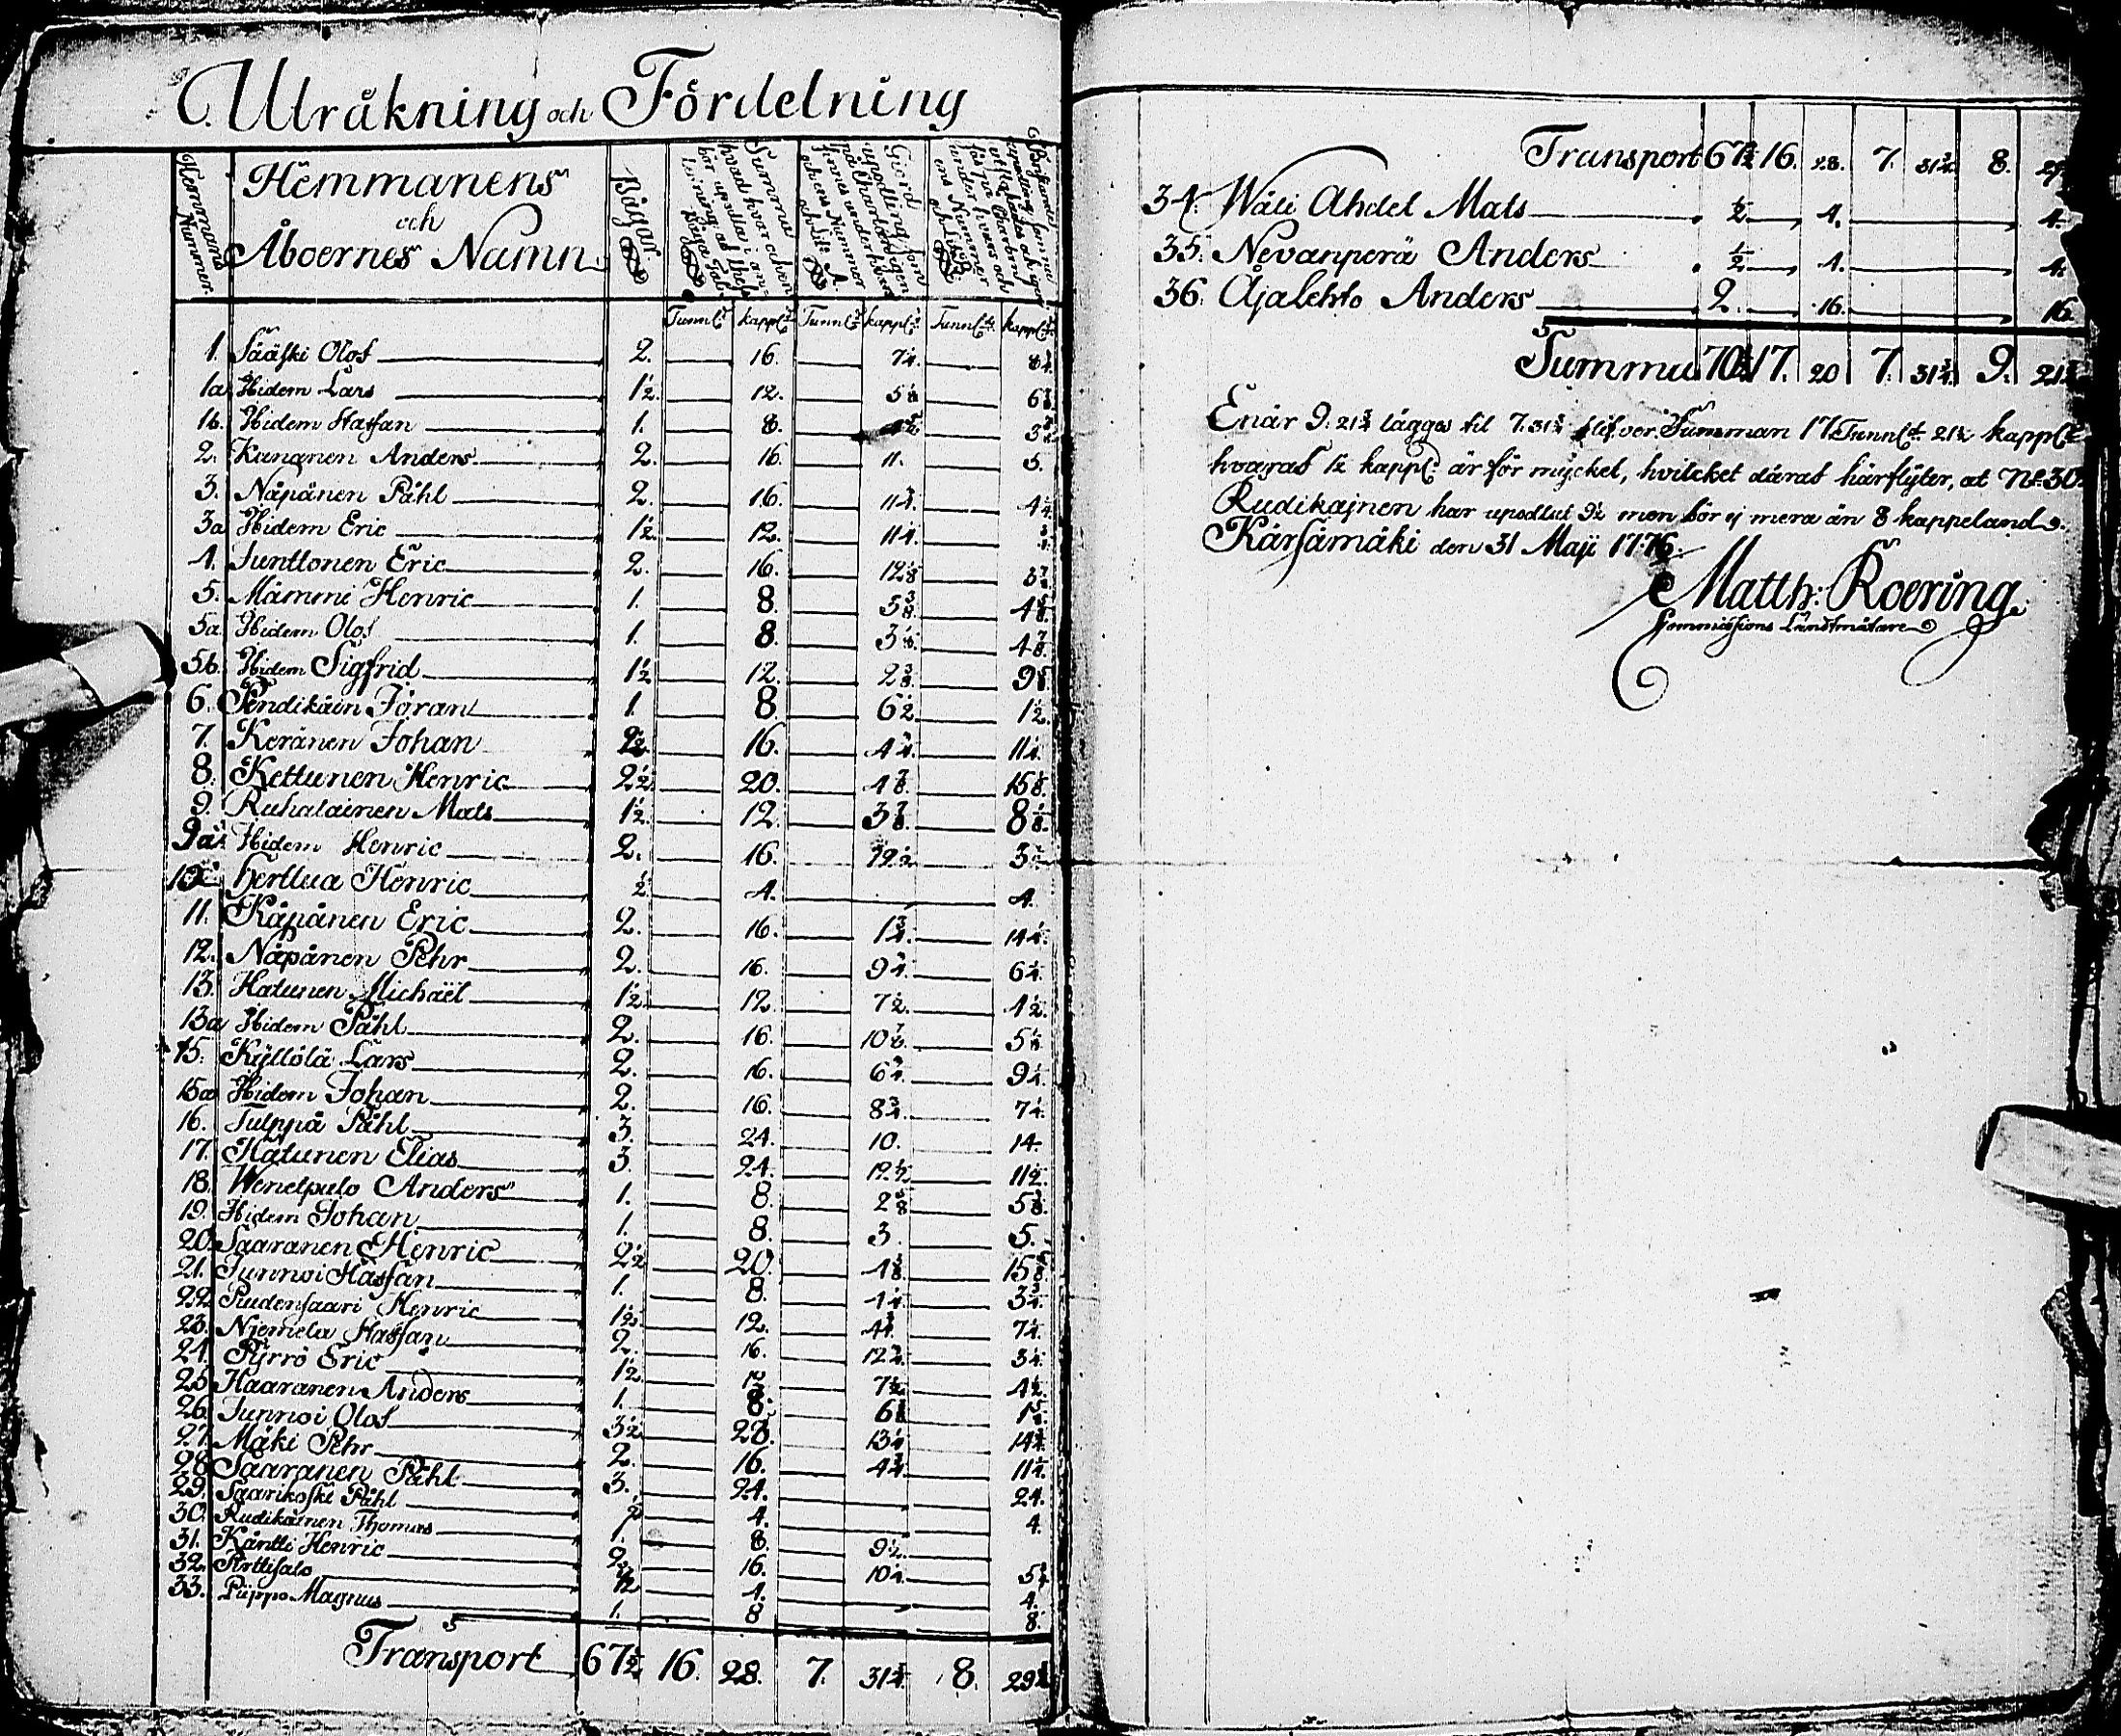 Utråkning och Fördelning
Hemmans Nummer.
Hemmanens
och
Åboernes Namn.
Bågar
Summa hvad hvar och en bör upodla i
Giord upodling som finnes under hvars och ens Nummer och Lit: A.
Tunnl:d kappl:d Tunnl:d kappl:d Tunnl:d kappl:d
1. Sääski Olof 2. 16. 7¾. 8¼
1a Hidem Lars 1½. 12. 5⅛ 6⅞
1b. Hidem Staffan 1. 8. 3¾
2. Kananen Anders 2. 16. 11. 5.
3. Nåpånen Påhl 2. 16. 11¾. 4¼
3a Hidem Eric 1½ 12. 11¼. ¾
4. Junttonen Eric 2. 16. 12⅛ 3⅞
5. Mämmi Henric 1. 8. 5⅜ 4⅝
5a Hidem Olof 1. 8. 3⅛ 4⅞
5b. Hidem Sigfrid 1½ 12. 2⅜ 9⅝
6. Pendikäin Jöran 1. 8 6½ 1½
7. Keränen Johan 16. 4¾. 11¼
8. Kettunen Henric 2½ 20. 4⅞ 15⅛
9. Ruhalainen Mats 1½. 12. 3⅞ 8⅛
9a. Hidem Henric 2. 16. 12½ 3½
10. Herttua Henric ½ 4. 4.
11. Kåpånen Eric 2. 16. 1¾ 14¼
12. Nåpånen Pehr 2. 16. 9¾. 6¼
13. Hatunen Michaël 1½ 12 7½ 4½
13a Hidem Påhl 2. 16. 10⅞ 5⅛
15. Kyllölä Lars 2. 16. 6¾. 9¼
15a Hidem Johan 2. 16. 8¾. 7¼
16. Tulppå Påhl 3. 24. 10. 14.
17. Hatunen Elias 3. 24. 12½ 11½
18. Wenetpalo Anders 1. 8. 2⅝ 5⅜
19. Hidem Johan 1. 8. 3. 5.
20. Saaranen Henric 2½ 20. 4⅛ 15⅞
21. Junnoi Hassan 1. 8. 4¼ 3¾
22. Pudensaari Henric 1½ 12. 4¾ 7¼
23. Njemela Hassan 2. 16. 12¾ 3¼
24. Pyrrö Eric 1½ 12 7½ 4½
25. Haaranen Anders 1. 8. 6⅜ 1⅝
26. Junnoi Olof 3½ 28. 13¼ 14¾
27. Mäki Pehr 2. 16. 4¾ 11¼
28. Saaranen Påhl 3. 24. 24.
29. Saarikoski Påhl ½ 4. 4.
30. Rudikainen Thomas 1. 8. 9½
31. Käntti Henric 2. 16. 10¼ 5¾
32. Arttisalo ½ 4. 4.
33. Püppo Magnus 1. 8 8.
Transport 67½ 16. 28. 7. 31¾. 8. 29¾
Transport 67½ 16. 28. 7. 31¾. 8. 29
34. Wäli Ahdel Mats ½ 4. 4.
35. Nevanperä Anders ½ 4. 4.
36. Åjalehto Anders 2. 16. 16.
Summa 70½ 17. 20 7. 31¾. 9. 21¾
Enär 9. 21¾ lägges til 7. 31¾ blifver Summan 17 Tunnl:d 21½ kappl:d
hvaraf 1½ kappl:d är för mycket, hvilcket däraf härflyter, at N:o 30.
Rudikajnen har upodlat 9½ men bör ej mera än 8 kappeland.
Kärsämäki den 31 Maji 1776.
Matth: Roering
Commissions Landtmätare